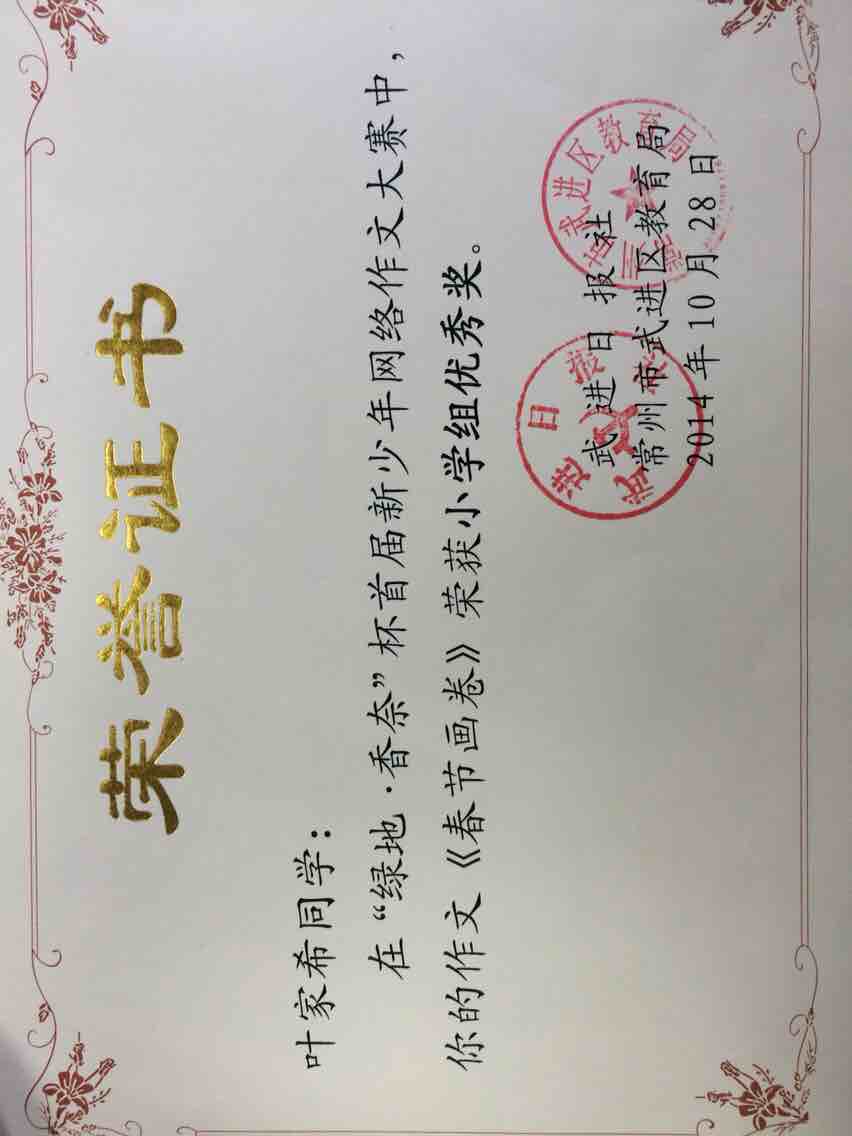 荣誉证书
叶家希同学：
在“绿地·香奈”杯首届新少年网络作文大赛中，
你的作文《春节画卷》荣获小学组优秀奖。
武进日报社
常州市武进区教育局
2014年10月28日